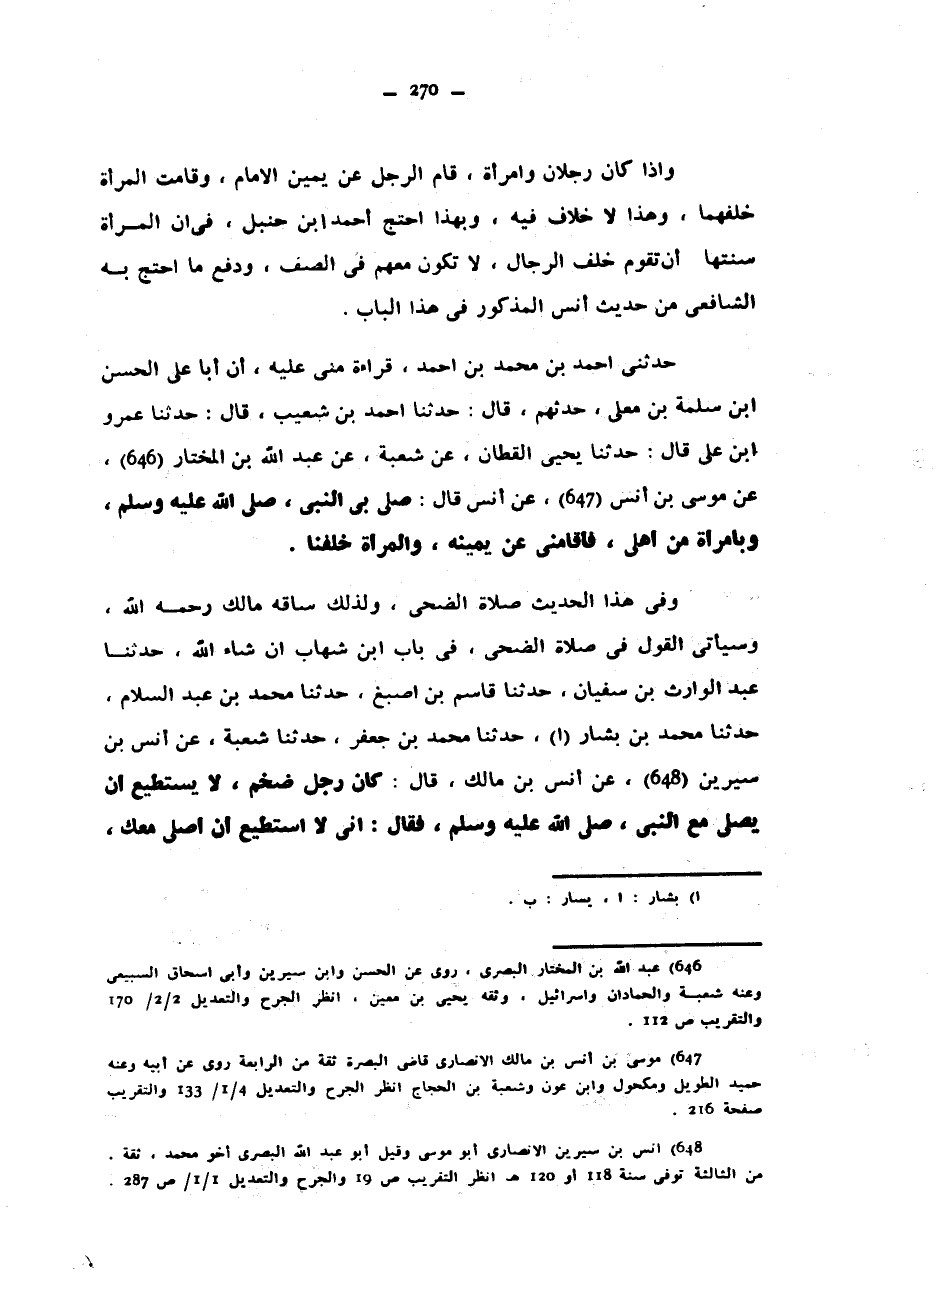 — 270 —
واذا كان رجلان وامرأة ، قام الرجل عن يمين الامام ، وقامت المرأة
خلفهما ، وهذا لا خلاف فيه ، وبهذا احتج أحمد ابن حنبل ، في ان المرأة
سنتها أن تقوم خلف الرجال ، لا تكون معهم فى الصف ، ودفع ما احتج به
الشافعى من حديث أنس المذكور فى هذا الباب .
حدثنى احمد بن محمد بن احمد ، قراءة منى عليه ، أن أبا على الحسن
ابن سلمة بن معلى ، حدثهم ، قال : حدثنا احمد بن شعيب ، قال : حدثنا عمرو
ابن على قال : حدثنا يحيى القطان ، عن شعبة ، عن عبد الله بن المختار (646) ،
عن موسى بن أنس (647) ، عن أنس قال : صلى بى النبى ، صلى الله عليه وسلم ،
وبامرأة من اهلى ، فاقامنى عن يمينه ، والمرأة خلفنا .
وفى هذا الحديث صلاة الضحى ، ولذلك ساقه مالك رحمه الله ،
وسيأتى القول فى صلاة الضحى ، فى باب ابن شهاب ان شاء الله ، حدثنا
عبد الوارث بن سفيان ، حدثنا قاسم بن اصبغ ، حدثنا محمد بن عبد السلام ،
حدثنا محمد بن بشار (ا) ، حدثنا محمد بن جعفر ، حدثنا شعبة ، عن أنس بن
سيرين (648) ، عن أنس بن مالك ، قال : كان رجل ضخم ، لا يستطيع ان
يصلى مع النبى ، صلى الله عليه وسلم ، فقال : انى لا استطيع أن أصلى معك ،
ا) بشار : ا ، يسار : ب .
646) عبد الله بن المختار البصرى ، روى عن الحسن وابن سيرين وأبى اسحاق السبيعى
وعنه شعبة والحمادان واسرائيل ، وثقه يحيى بن معين ، انظر الجرح والتعديل 2/2/ 170
والتقريب ص 112 .
647) موسى بن أنس بن مالك الانصارى قاضى البصرة ثقة من الرابعة روى عن أبيه وعنه
حميد الطويل ومكحول وابن عون وشعبة بن الحجاج انظر الجرح والتعديل 1/4/ 133 والتقريب
صفحة 216 .
648) انس بن سيرين الانصارى أبو موسى وقيل أبو عبد الله البصرى أخو محمد ، ثقة .
من الثالثة توفى سنة 118 أو 120 هـ انظر التقريب ص 19 والجرح والتعديل 1/1/ ص 287 .